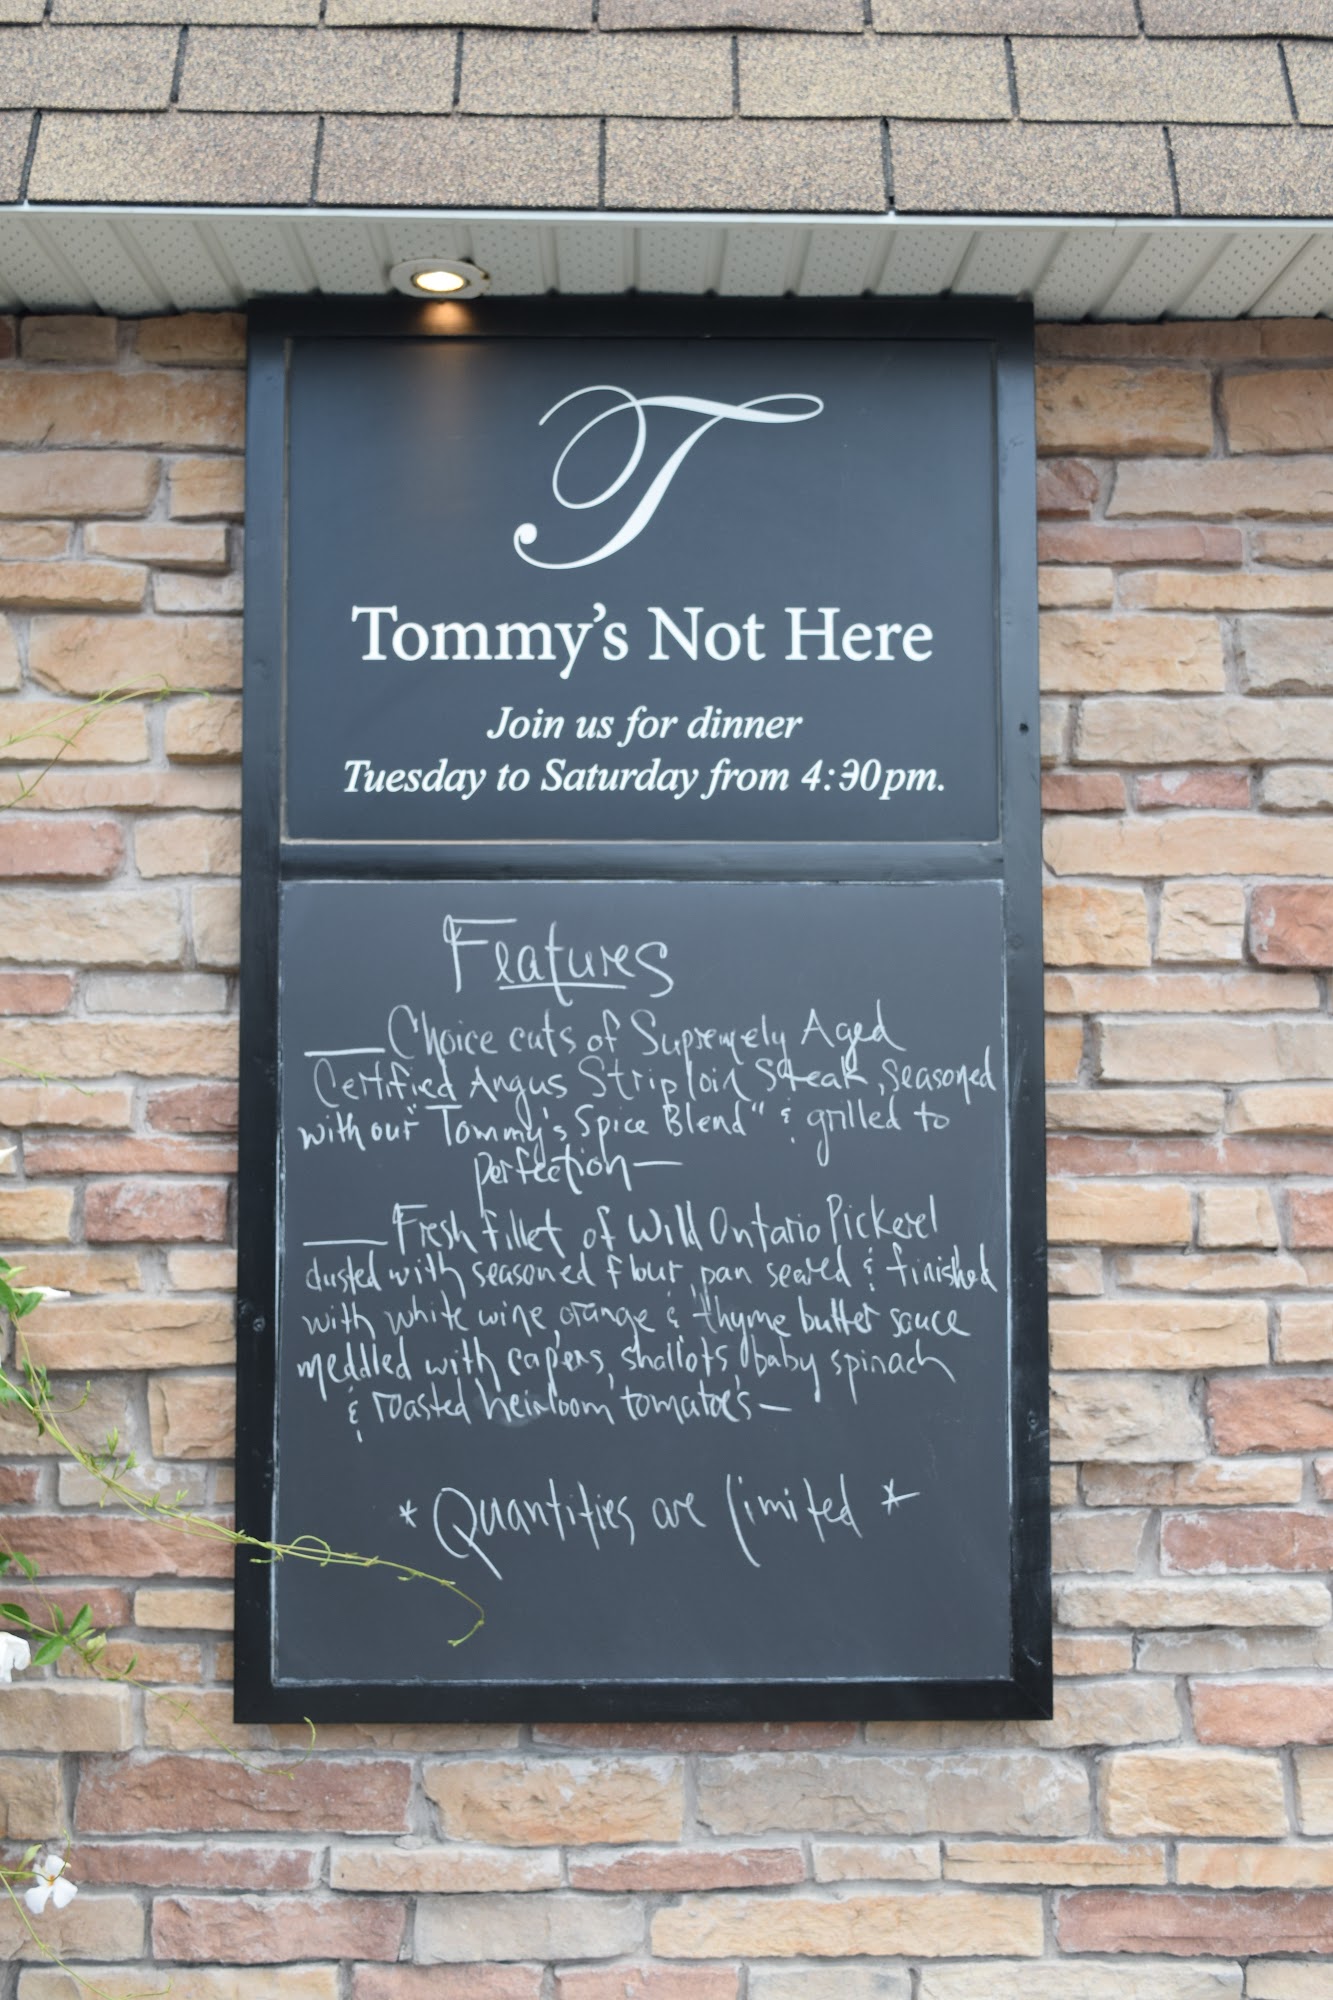 T
Tommy's Not Here
Join us for dinner
Tuesday to Saturday from 4:30pm.
Features
— Choice cuts of Supremely Aged
Certified Angus Striploin Steak, seasoned
with our "Tommy's Spice Blend" & grilled to
perfection —
— Fresh fillet of Wild Ontario Pickerel
dusted with seasoned flour, pan seared & finished
with white wine, orange & thyme butter sauce
meddled with capers, shallots, baby spinach
& roasted heirloom tomatoes —
* Quantities are limited *